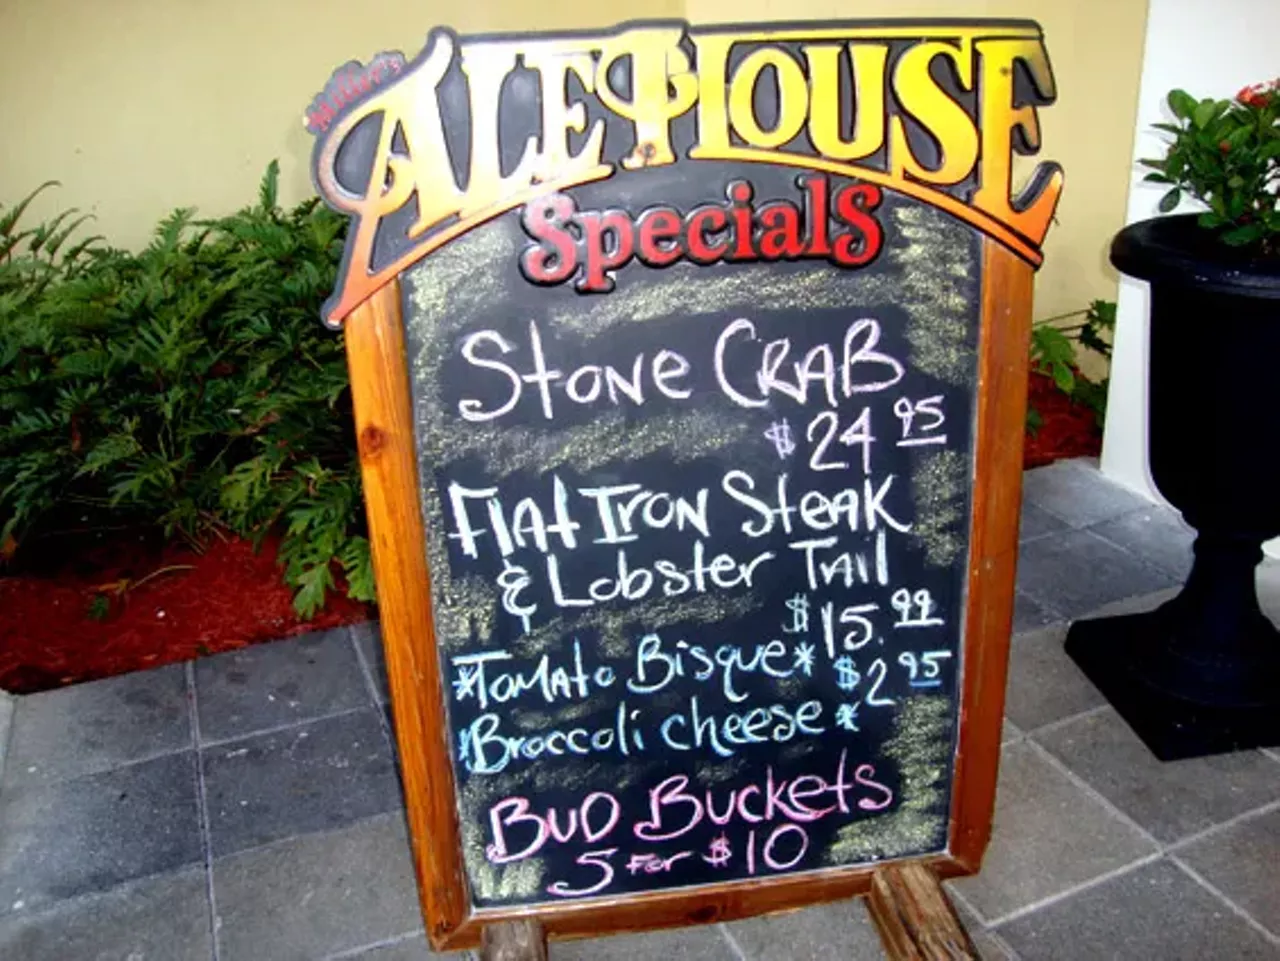 Miller's
ALEHOUSE
Specials
Stone CRAB
$24 95
Flat Iron Steak
& Lobster Tail
$15.99
*Tomato Bisque* $2 95
*Broccoli cheese*
BUD BUCKETS
5 For $10